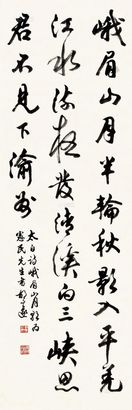 峨眉山月半輪秋影入平羌
江水流夜發清溪向三峽思
君不見下渝州
太白詩峨眉山月歌為
憲民先生書